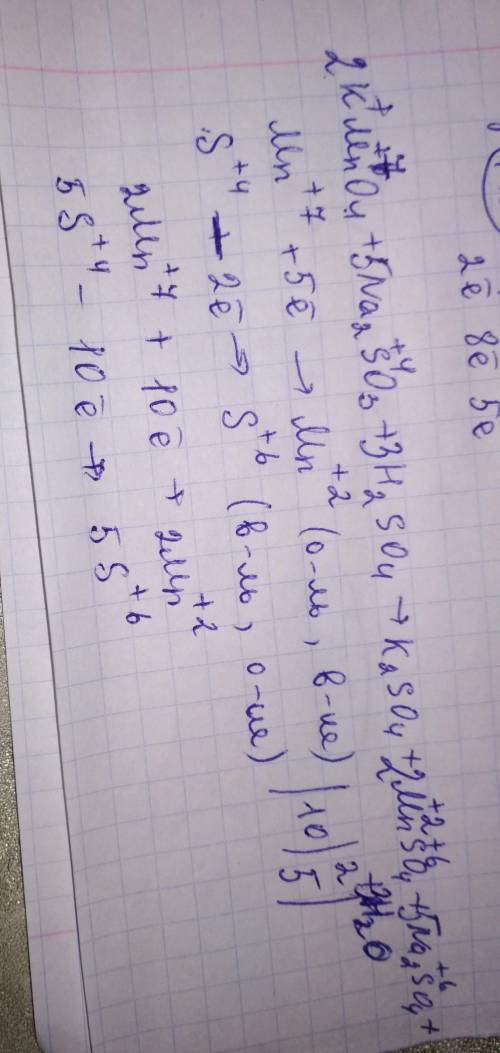 2ē 8ē 5ē
2K⁺Mn⁺⁷O₄ + 5Na₂S⁺⁴O₃ + 3H₂SO₄ → K₂SO₄ + 2Mn⁺²S⁺⁶O₄ + 5Na₂S⁺⁶O₄ +
+ 3H₂O
Mn⁺⁷ + 5ē → Mn⁺² (о-ль, в-ие) | 10 | 2
S⁺⁴ - 2ē → S⁺⁶ (в-ль, о-ие) | 5 |
2Mn⁺⁷ + 10ē → 2Mn⁺²
5S⁺⁴ - 10ē → 5S⁺⁶